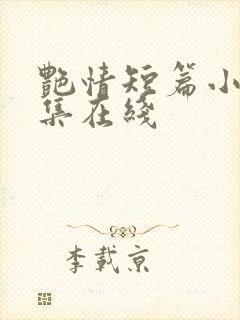 艷情短篇小
集在綫
李載京